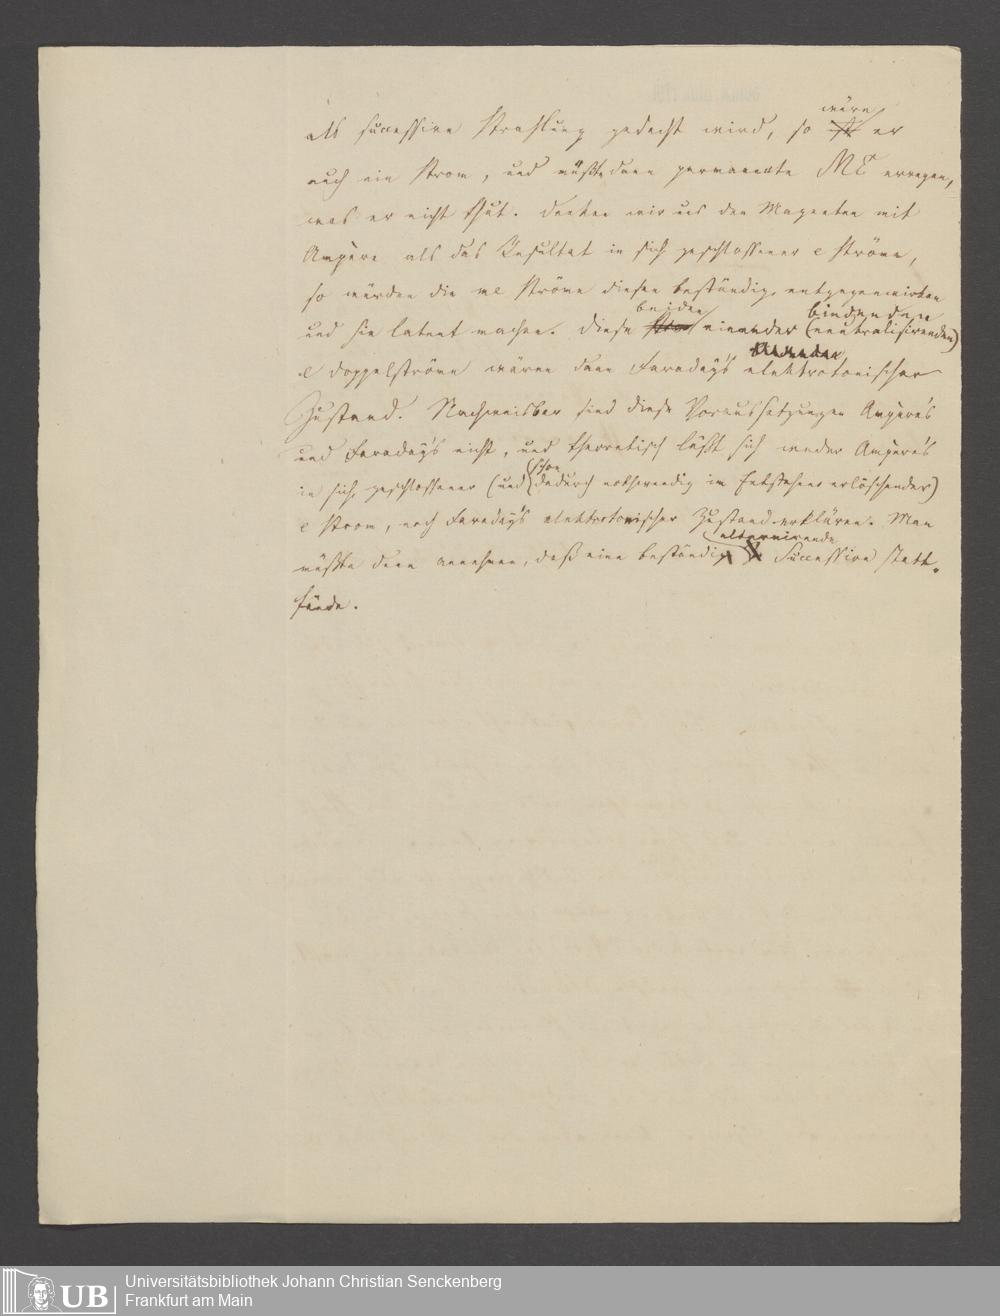 als successive Strahlung gedacht wird, so wäre er
auch ein Strom, und müßte dann permanente ME erregen,
was er nicht thut. Denken wir uns den Magneten mit
Ampère als das Resultat in sich geschlossener e Ströme,
so würden die me Ströme diesen beständig entgegenwirken
und sie latent machen. Diese beiden einander bindenden (neutralisirenden)
e Doppelströme wären dann Faraday's elektrotonischer
Zustand. Nachweisbar sind diese Voraussetzungen Ampère's
und Faraday's nicht, und theoretisch läßt sich weder Ampère's
in sich geschlossener (und schon dadurch nothwendig im Entstehen erlöschender)
e Strom, noch Faraday's elektrotonischer Zustand erklären. Man
müßte denn annehmen, daß eine beständig alternirende Succession statt-
fände.
Universitätsbibliothek Johann Christian Senckenberg
Frankfurt am Main
UB